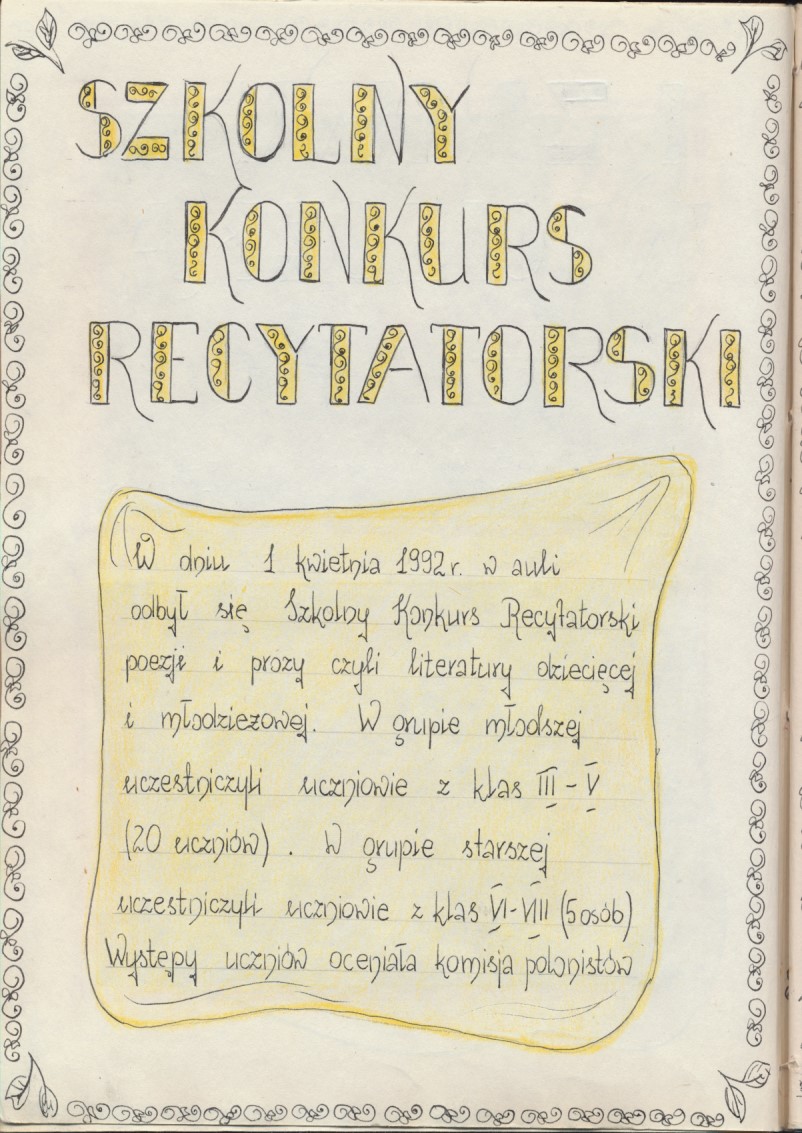 SZKOLNY
KONKURS
RECYTATORSKI
W dniu 1 kwietnia 1992 r. w auli
odbył się Szkolny Konkurs Recytatorski
poezji i prozy czyli literatury dziecięcej
i młodzieżowej. W grupie młodszej
uczestniczyli uczniowie z klas III - V
(20 uczniów) . W grupie starszej
uczestniczyli uczniowie z klas VI-VIII (5 osób)
Występy uczniów oceniała komisja polonistów